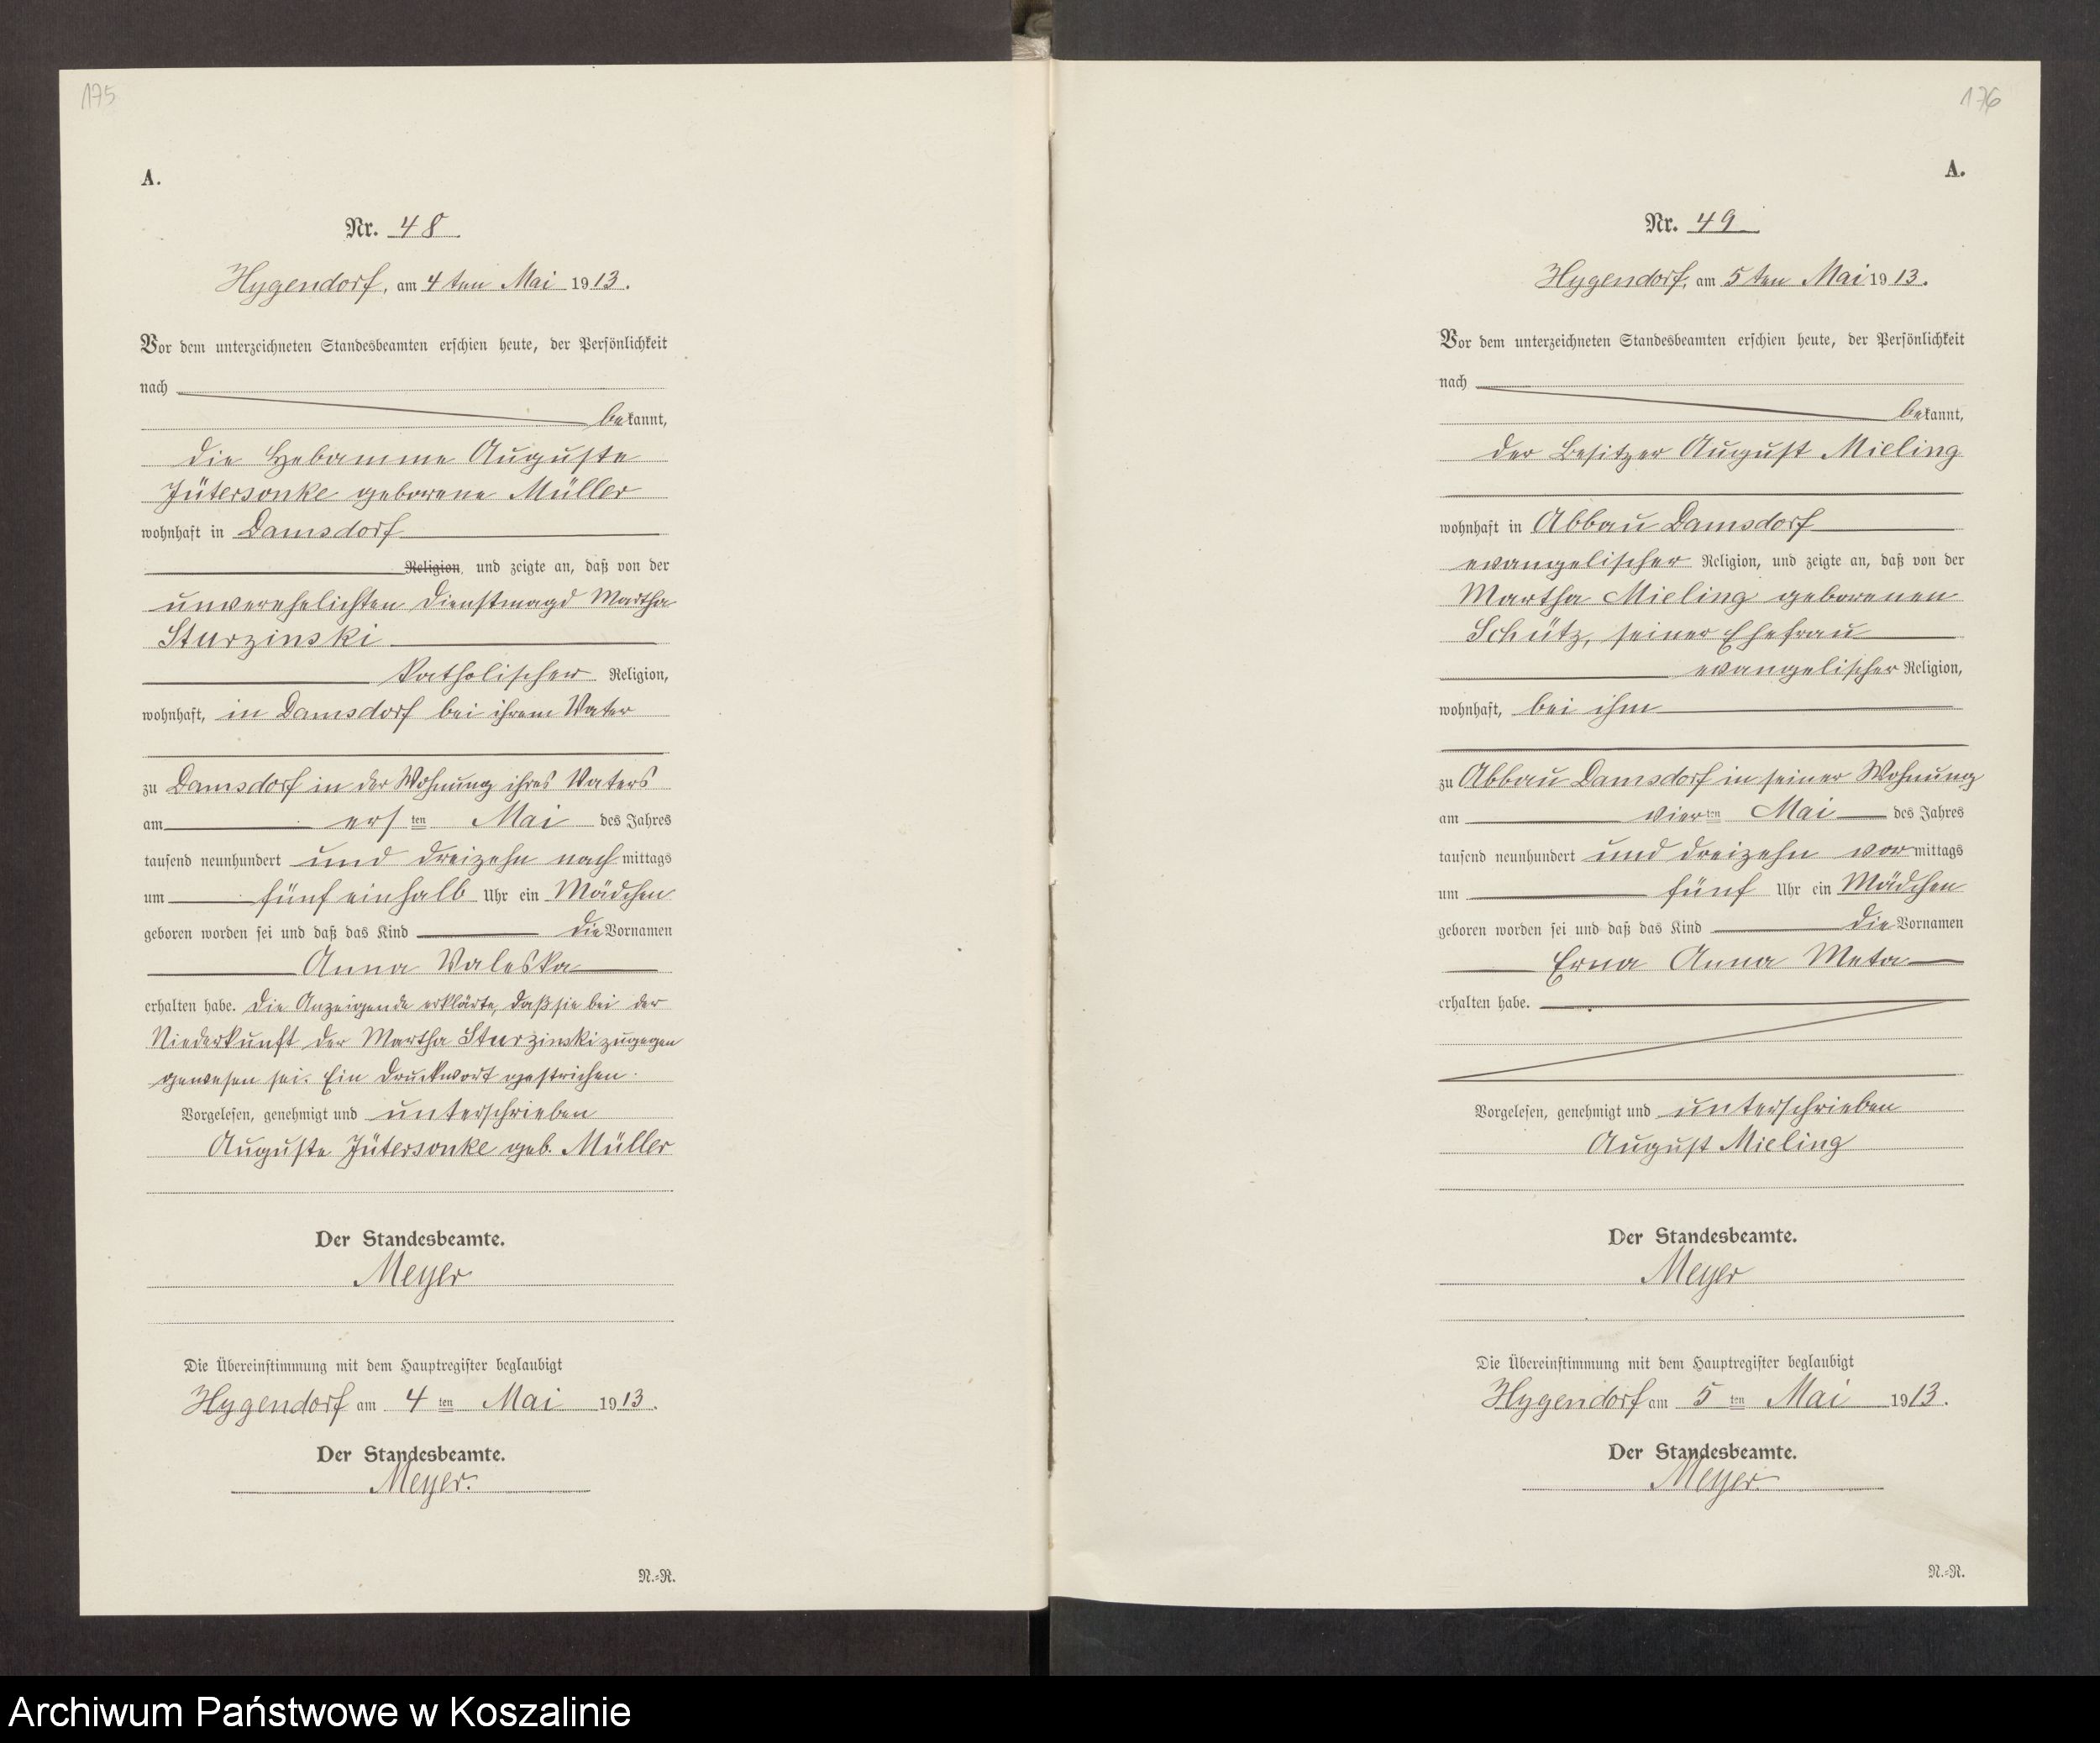 175
A.
Nr. 48
Hygendorf, am 4ten Mai 1913.
Vor dem unterzeichneten Standesbeamten erschien heute, der Persönlichkeit
nach
bekannt,
die Hebamme Auguste
Jütersonke geborene Müller
wohnhaft in Damsdorf
Religion, und zeigte an, daß von der
unverehelichten Dienstmagd Martha
Sturzinski
katholischer Religion,
wohnhaft, in Damsdorf bei ihrem Vater
zu Damsdorf in der Wohnung ihres Vaters
am ersten Mai des Jahres
tausend neunhundert und dreizehn nachmittags
um fünf einhalb Uhr ein Mädchen
geboren worden sei und daß das Kind die Vornamen
Anna Valeska
erhalten habe. Die Anzeigende erklärte, daß sie bei der
Niederkunft der Martha Sturzinski zugegen
gewesen sei. Ein Druckwort gestrichen.
Vorgelesen, genehmigt und unterschrieben
Auguste Jütersonke geb. Müller
Der Standesbeamte.
Meyer
Die Übereinstimmung mit dem Hauptregister beglaubigt
Hygendorf am 4ten Mai 1913.
Der Standesbeamte.
Meyer.
N.=R.
176
A.
Nr. 49
Hygendorf, am 5ten Mai 1913.
Vor dem unterzeichneten Standesbeamten erschien heute, der Persönlichkeit
nach
bekannt,
der Besitzer August Mieling
wohnhaft in Abbau Damsdorf
evangelischer Religion, und zeigte an, daß von der
Martha Mieling geborenen
Schütz, seiner Ehefrau
evangelischer Religion,
wohnhaft, bei ihm
zu Abbau Damsdorf in seiner Wohnung
am vierten Mai des Jahres
tausend neunhundert und dreizehn vormittags
um fünf Uhr ein Mädchen
geboren worden sei und daß das Kind die Vornamen
Erna Anna Meta
erhalten habe.
Vorgelesen, genehmigt und unterschrieben
August Mieling
Der Standesbeamte.
Meyer
Die Übereinstimmung mit dem Hauptregister beglaubigt
Hygendorf am 5ten Mai 1913.
Der Standesbeamte.
Meyer.
N.=R.
Archiwum Państwowe w Koszalinie